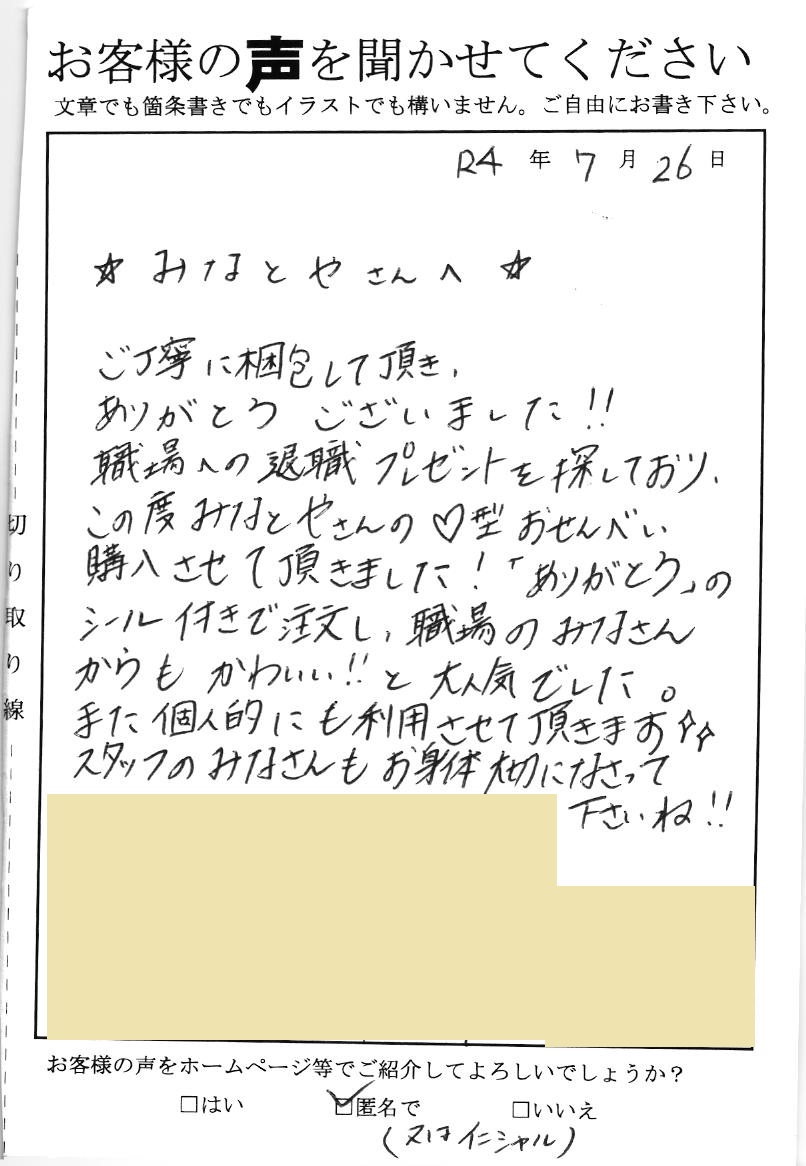 お客様の声を聞かせてください
文章でも箇条書きでもイラストでも構いません。ご自由にお書き下さい。
R4 年 7 月 26 日
☆ みなとやさんへ ☆
ご丁寧に梱包して頂き、
ありがとう ございました!!
職場への退職プレゼントを探しており、
この度みなとやさんの♡型おせんべい
購入させて頂きました!「ありがとう」の
シール付きで注文し、職場のみなさん
からも かわいい!!と大人気でした。
また個人的にも利用させて頂きます
スタッフのみなさんもお身体大切になさって
下さいね!!
切り取り線
お客様の声をホームページ等でご紹介してよろしいでしょうか?
□はい ☑匿名で □いいえ
(又はイニシャル)